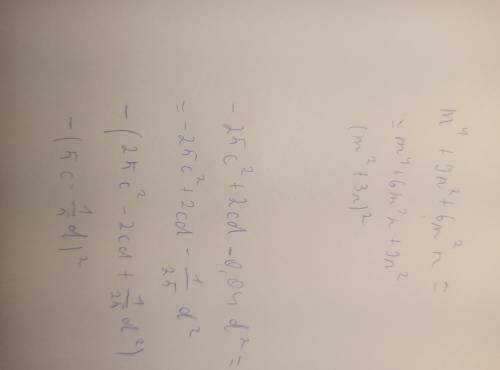 m⁴ + 9n² + 6m²n =
= m⁴ + 6m²n + 9n²
(m² + 3n)²
- 25c² + 2cd - 0,04d² =
= - 25c² + 2cd - 1/25 d²
- (25c² - 2cd + 1/25 d²)
- (5c - 1/5 d)²